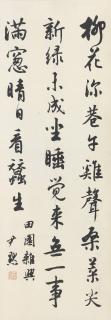 柳花深巷午雞聲桑葉尖
新綠未成坐睡覺來無一事
滿窗晴日看蠶生
田園雜興
尹默